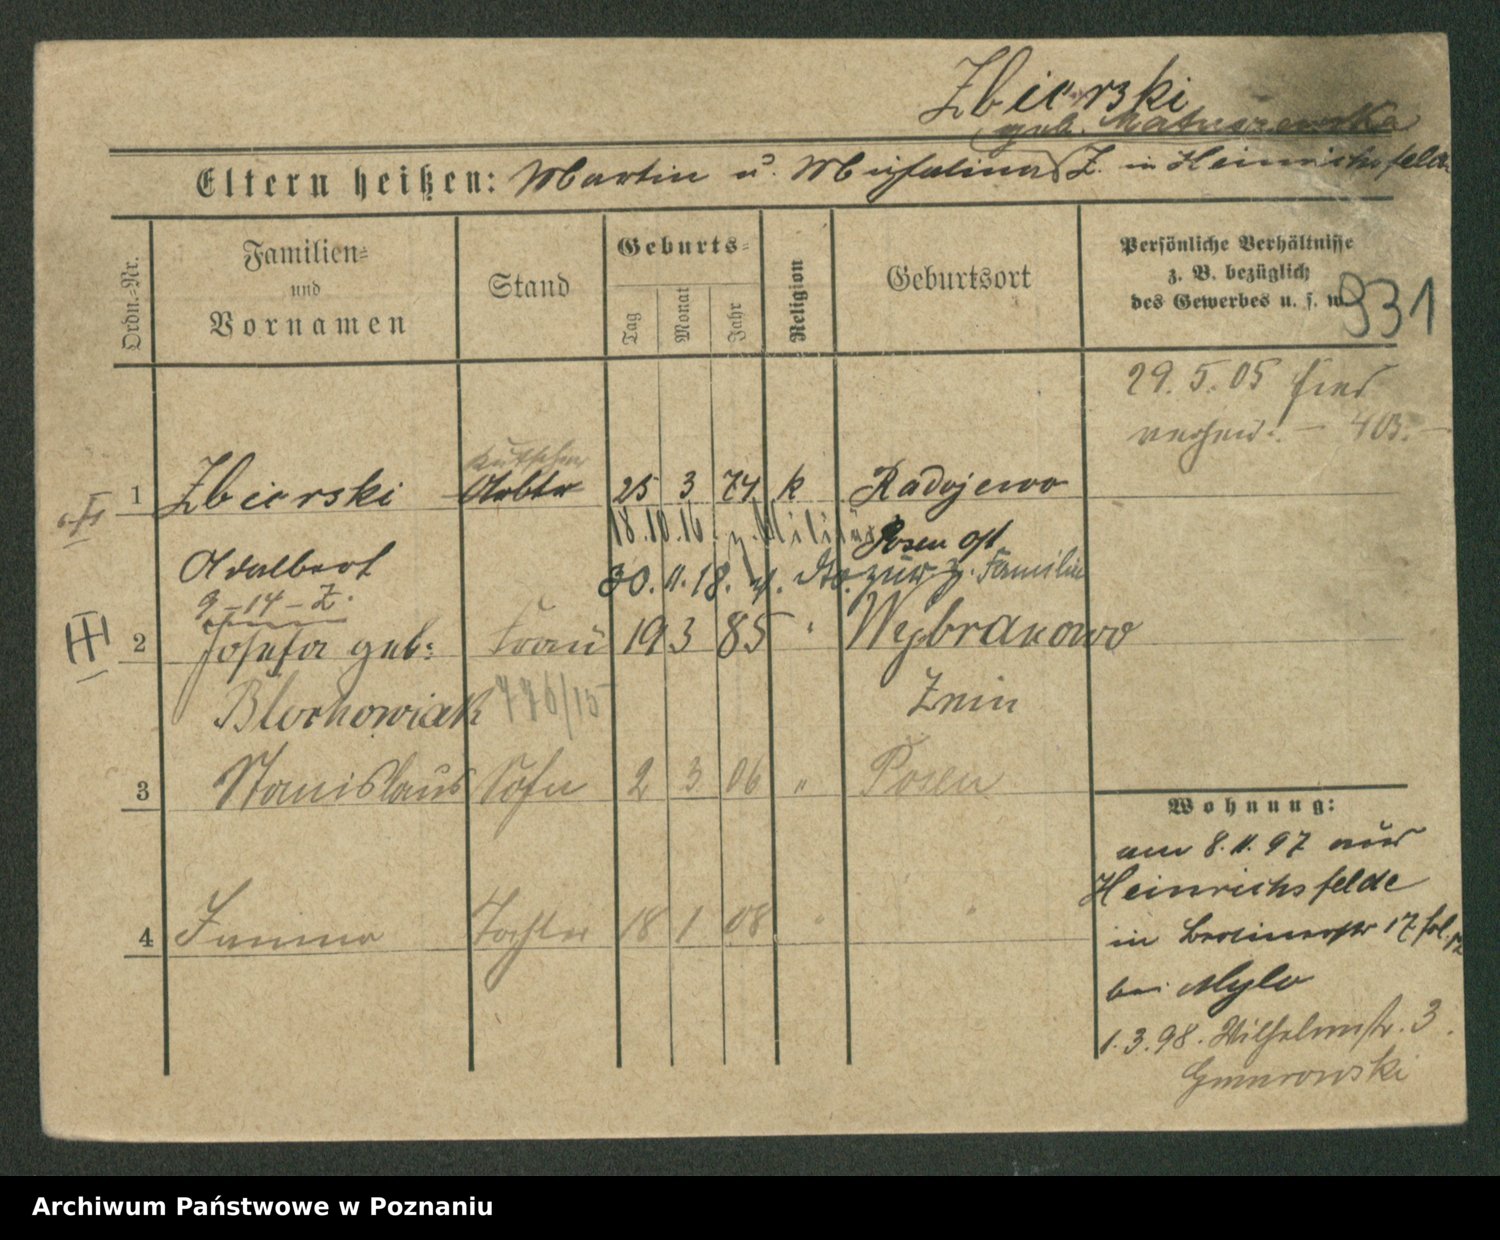 Zbierski
geb. Matuszewska
Eltern heißen: Martin u. Michalina Z. in Heinrichsfelde
Ordn.-Nr.
Familien- und Vornamen
Stand
Geburts-
Tag
Monat
Jahr
Religion
Geburtsort
Persönliche Verhältnisse
z. B. bezüglich
des Gewerbes u. s. w.
931
29. 5. 05
403.
Kutscher
1 Zbierski Arbtr 25 3 74 k Radojewo
18.10.16. z. Militär
Posen Ost
Adalbert
30.11.18. v. zur z. Familie
9-14-Z.
2 Josefa geb: Frau 19 3 85 " Wybranowo
Blochowiak 776/15 Znin
3 Stanislaus Sohn 2 3 06 " Posen
4 Tochter 18 1 08 " "
Wohnung:
am 8.11.97 aus
Heinrichsfelde
in Berlinerstr 17
bei Mylo
1.3.98. Wilhelmstr. 3.
Gmurowski
Archiwum Państwowe w Poznaniu